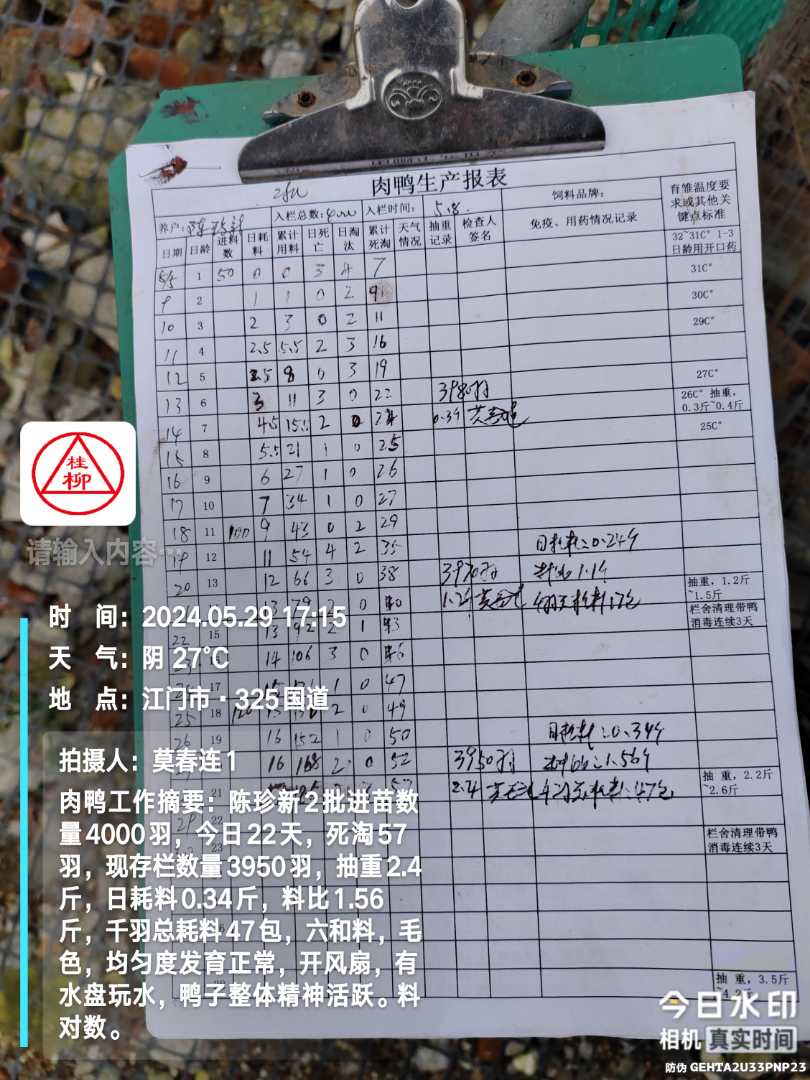 肉鸭生产报表
养户: 入栏总数: 入栏时间: 5.8. 饲料品牌: 育雏温度要求或其他关键点标准
日期 日龄 进料数 日耗料 累计用料 日死亡 日淘汰 累计死淘 天气情况 抽重记录 检查人签名 免疫、用药情况记录
32~31C° 1-3日龄用开口药
1 50 0 0 3 4 7 31C°
9 2 1 1 0 2 9 30C°
10 3 2 3 0 2 11 29C°
11 4 2.5 5.5 2 3 16
12 5 2.5 8 0 3 19 27C°
13 6 3 11 3 0 22 3980羽 26C° 抽重，0.3斤~0.4斤
14 7 4.5 15.5 2 0 24 0.39 25C°
15 8 5.5 21 1 0 25
16 9 6 27 1 0 26
17 10 7 34 1 0 27
18 11 100 9 43 0 2 29
19 12 11 54 4 2 35 日耗料:0.24斤
20 13 12 66 3 0 38 3970羽 料比1.1斤
13 79 2 0 40 抽重，1.2斤~1.5斤
22 15 13 92 2 1 43 栏舍清理带鸭消毒连续3天
14 106 3 0 46
17 1 0 47
25 18 2 0 49
26 19 16 152 1 0 50 日耗料:0.34斤
16 168 2 0 52 3950羽 料比:1.56斤
21 2.4 抽重，2.2斤~2.6斤
22
23 栏舍清理带鸭消毒连续3天
抽重，3.5斤
桂柳
请输入内容…
时 间：2024.05.29 17:15
天 气：阴 27℃
地 点：江门市·325国道
拍摄人：莫春连1
肉鸭工作摘要：陈珍新2批进苗数
量4000羽，今日22天，死淘57
羽，现存栏数量3950羽，抽重2.4
斤，日耗料0.34斤，料比1.56
斤，千羽总耗料47包，六和料，毛
色，均匀度发育正常，开风扇，有
水盘玩水，鸭子整体精神活跃。料
对数。
今日水印
相机 真实时间
防伪 GEHTA2U33PNP23